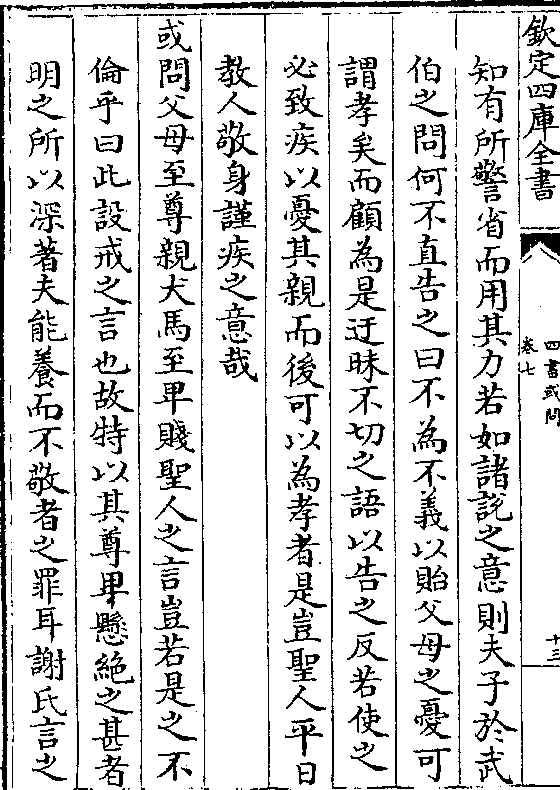 欽定四庫全書
四書或問
卷七
十三
知有所警省而用其力若如諸說之意則夫子於武
伯之問何不直告之曰不為不義以貽父母之憂可
謂孝矣而顧為是迂昧不切之語以告之反若使之
必致疾以憂其親而後可以為孝者是豈聖人平日
教人敬身謹疾之意哉
或問父母至尊親犬馬至卑賤聖人之言豈若是之不
倫乎曰此設戒之言也故特以其尊卑懸絶之甚者
明之所以深著夫能養而不敬者之罪耳謝氏言之